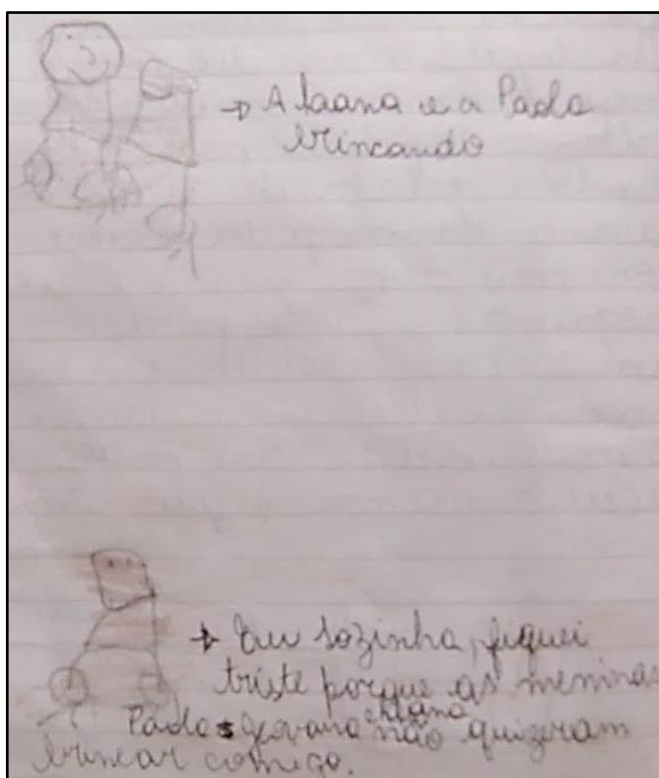 → A Laana e a Paola
brincando
→ Eu sozinha, fiquei
triste porque as meninas
Paola geovana não quizeram
brincar comigo.